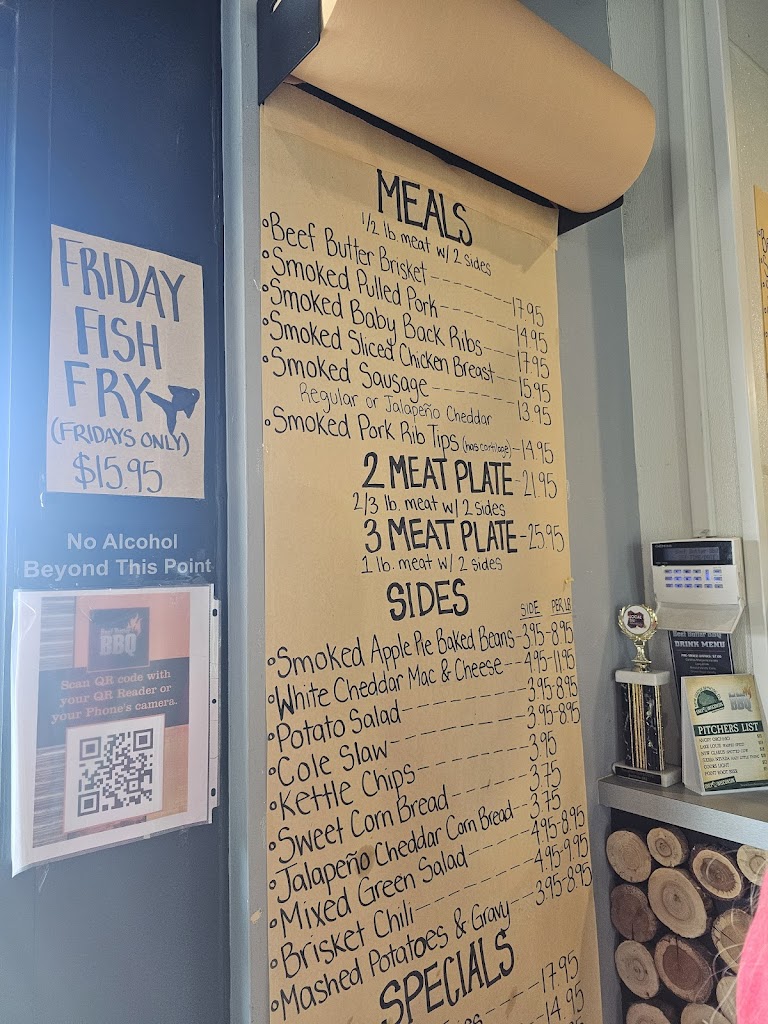 FRIDAY
FISH
FRY
(FRIDAYS ONLY)
$15.95
No Alcohol
Beyond This Point
BBQ
Scan QR code with
your QR Reader or
your Phone's camera.
MEALS
1/2 lb. meat w/ 2 sides
Beef Butter Brisket 17.95
Smoked Pulled Pork 14.95
Smoked Baby Back Ribs 17.95
Smoked Sliced Chicken Breast 15.95
Smoked Sausage 13.95
Regular or Jalapeño Cheddar
Smoked Pork Rib Tips (has cartilage) - 14.95
2 MEAT PLATE - 21.95
2/3 lb. meat w/ 2 sides
3 MEAT PLATE - 25.95
1 lb. meat w/ 2 sides
SIDES
SIDE PER LB
Smoked Apple Pie Baked Beans - 3.95-8.95
White Cheddar Mac & Cheese 4.95-11.95
Potato Salad 3.95-8.95
Cole Slaw 3.95-8.95
Kettle Chips 3.95
Sweet Corn Bread 3.75
Jalapeño Cheddar Corn Bread 3.75
Mixed Green Salad 4.95-8.95
Brisket Chili 4.95-9.95
Mashed Potatoes & Gravy 3.95-8.95
SPECIALS
17.95
14.95
Beef Butter BBQ
DRINK MENU
BBQ
PITCHERS LIST
ANGRY ORCHARD
NEW GLARUS SPOTTED COW
COORS LIGHT
POINT ROOT BEER